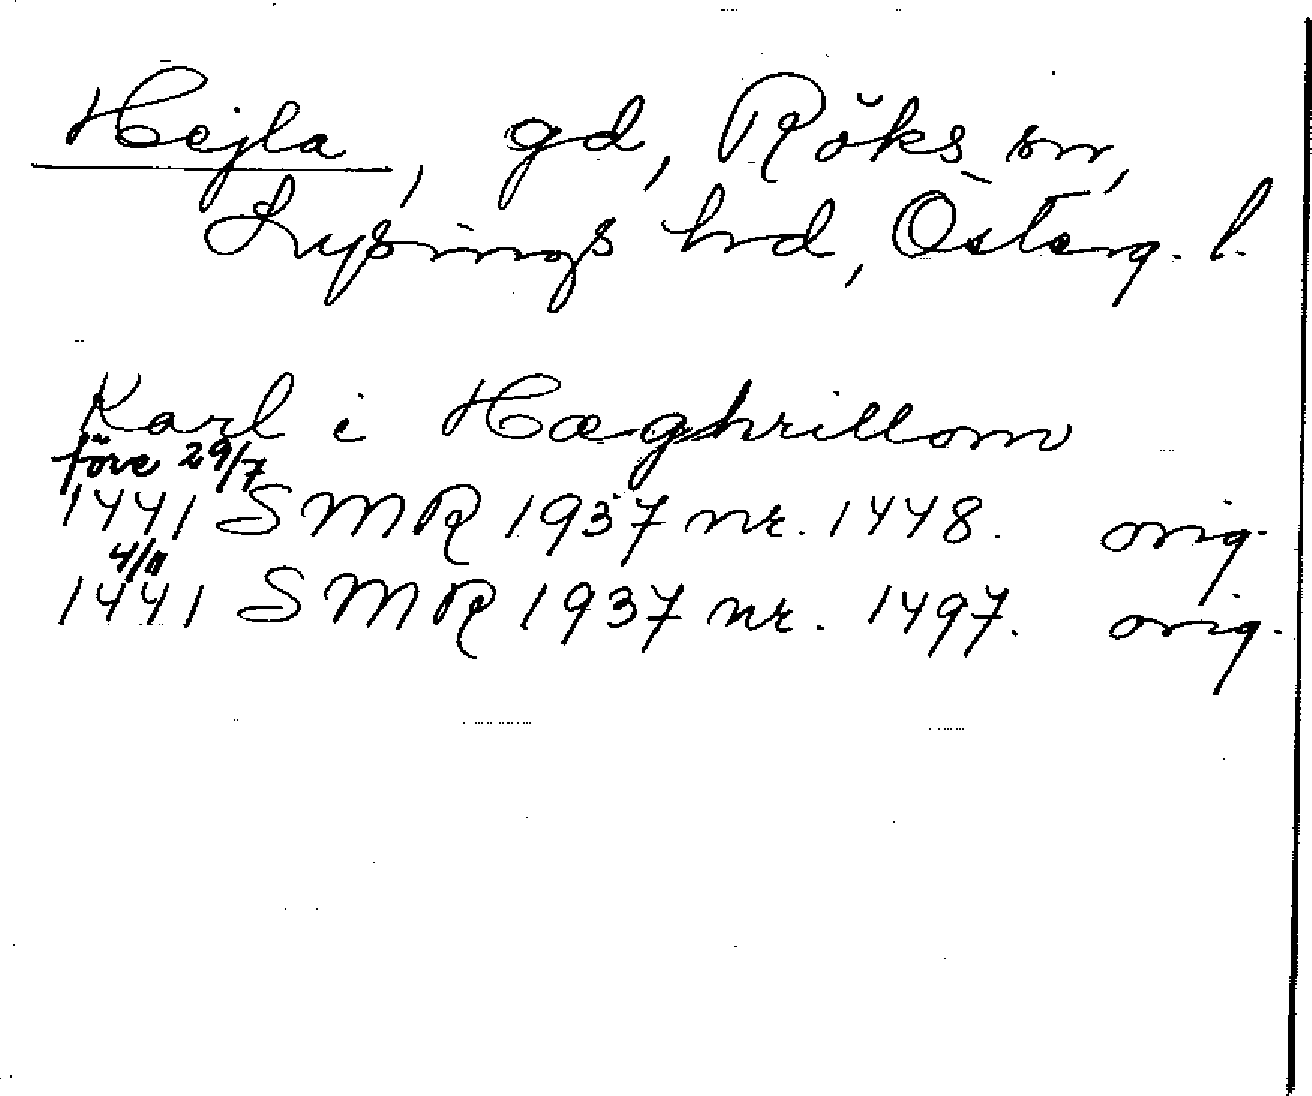 Hejla, gd, Röks sn,
Lysings hrd, Österg. l.
Karl i Hæghrillom
före 29/7
1441 SMR 1937 nr. 1448. orig.
4/11
1441 SMR 1937 nr. 1497. orig.